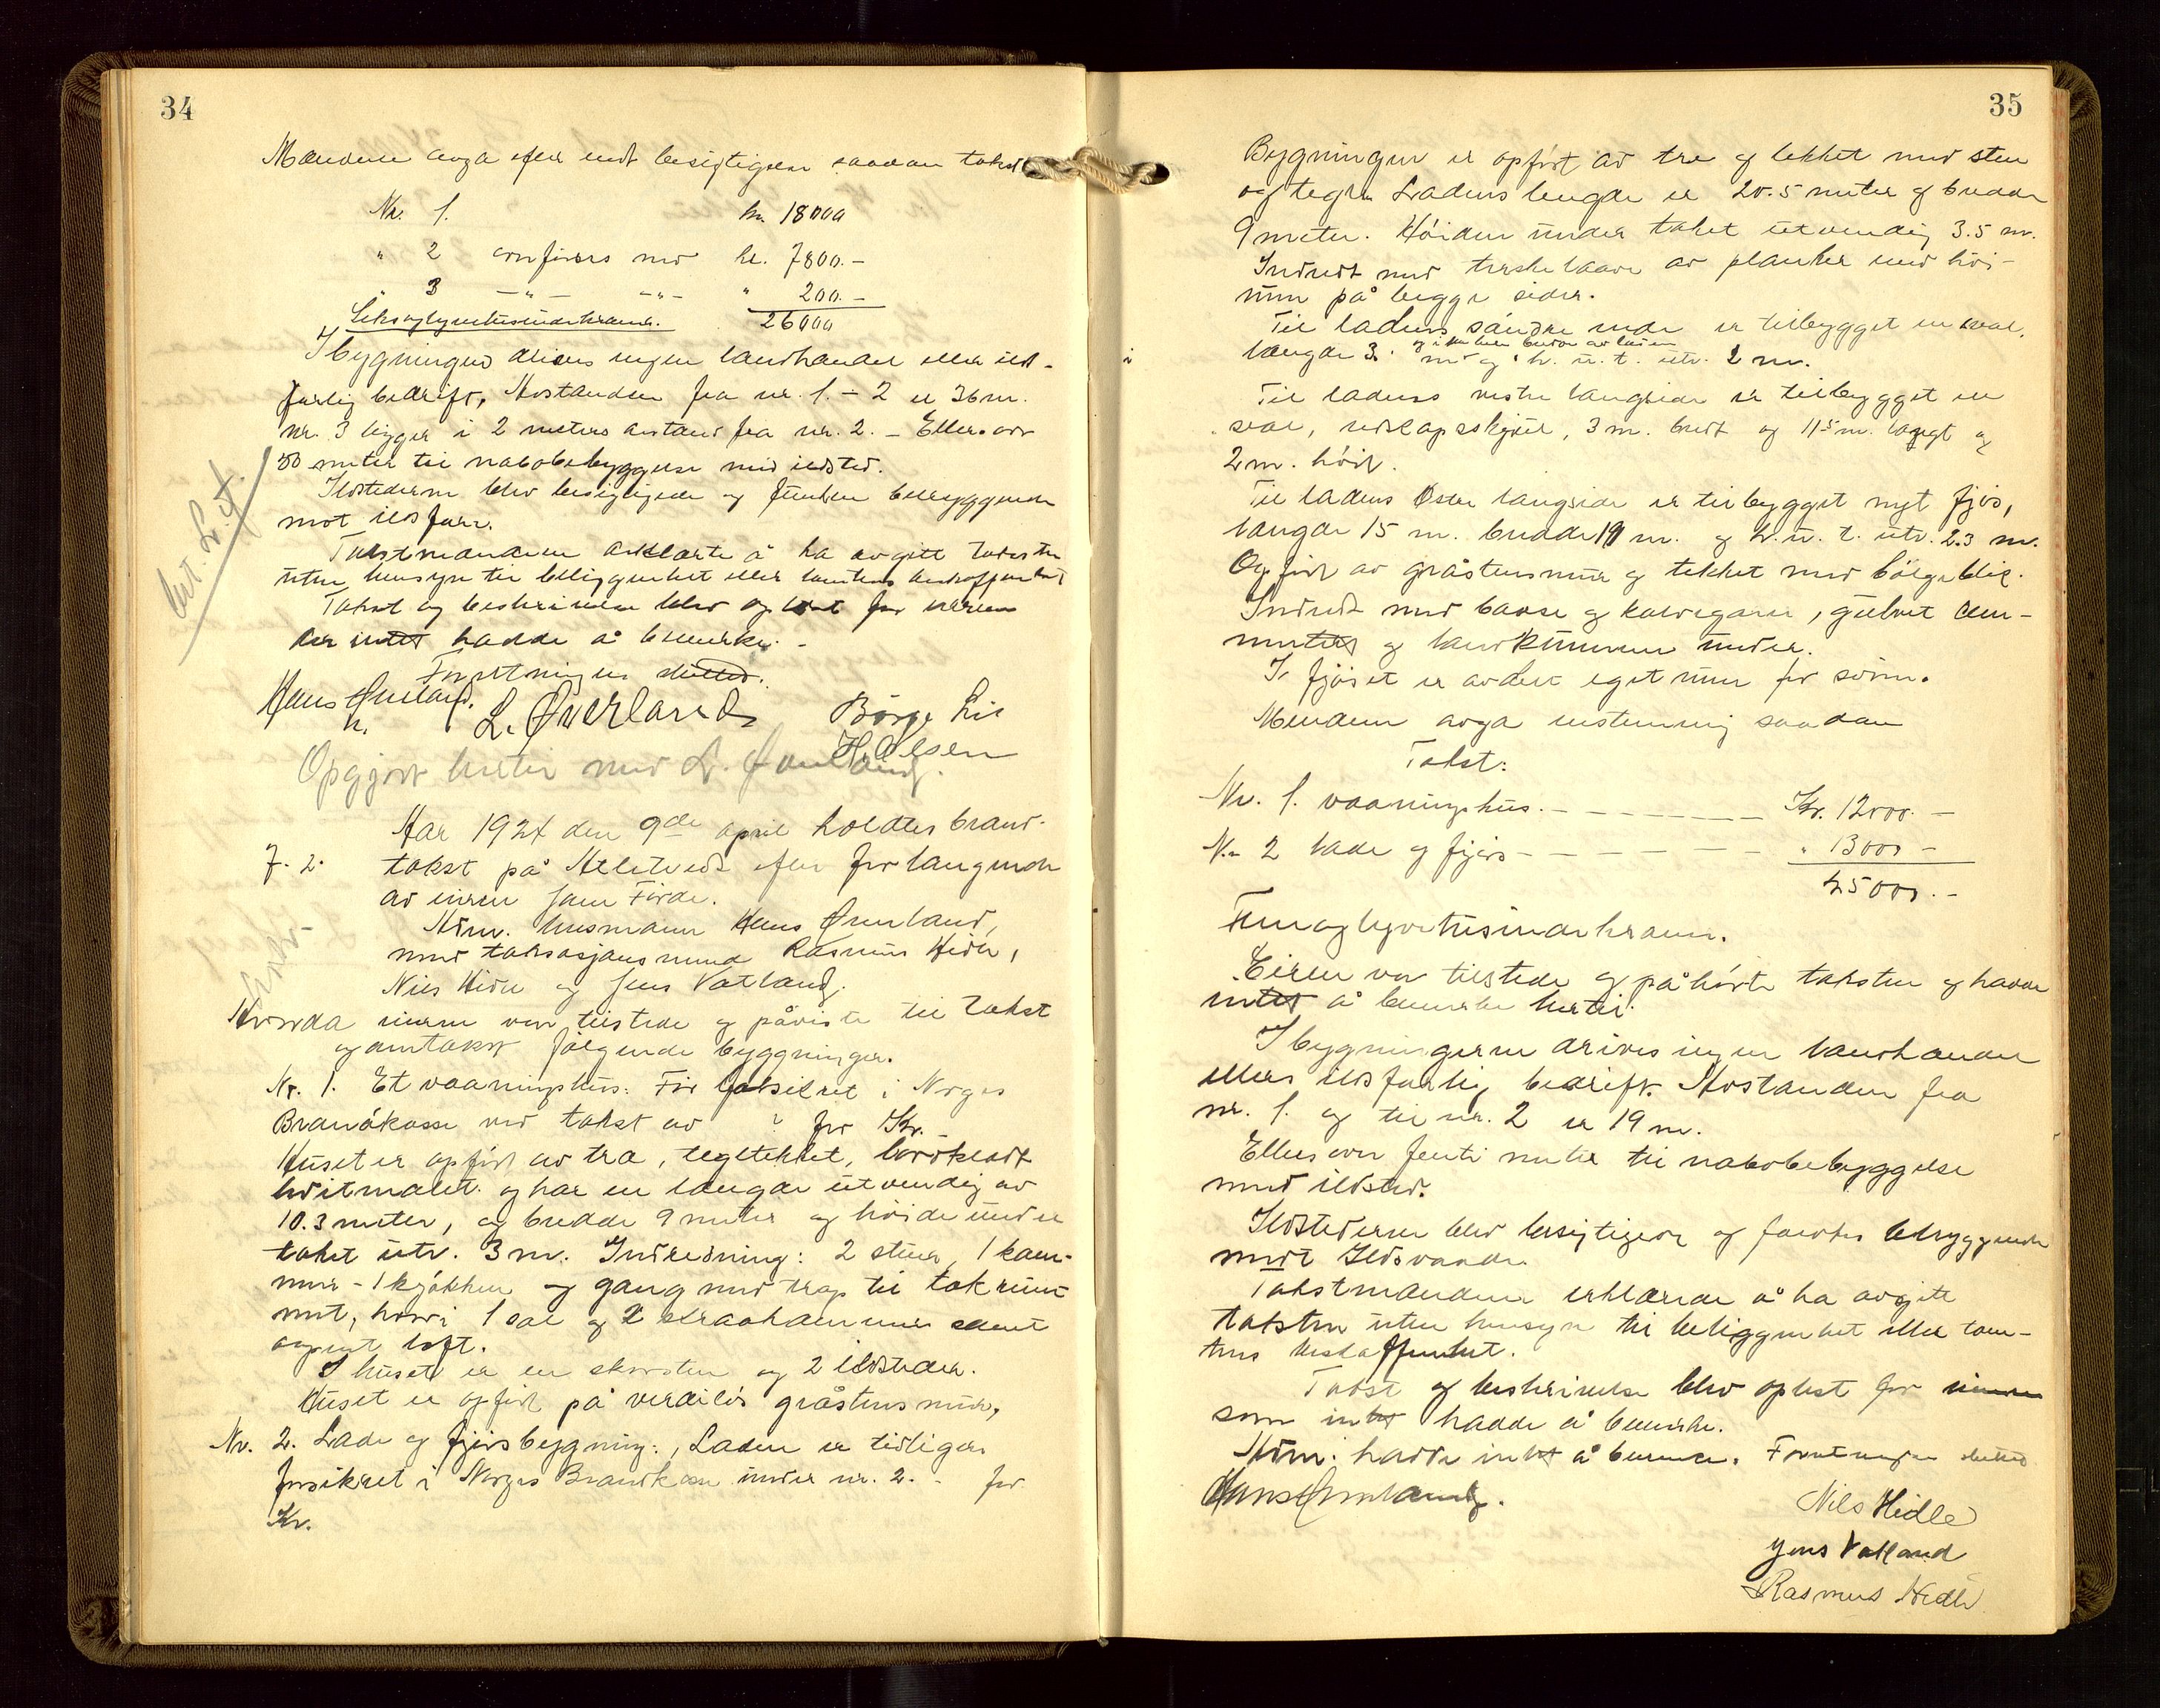 34
Mændene avga efter endt besigtigelse saadan takst
Nr. 1. kr. 18000
" 2 anføres med kr. 7800.-
" 3 -"- -"- " 200.-
Seksogtyvetusindekroner. 26000
I bygningene drives ingen landhandel eller ild-
farlig bedrift, Avstanden fra nr. 1. - 2 er 36 m.
nr. 3 ligger i 2 meters avstand fra nr. 2. - Ellers over
50 meter til nabobebyggelse med ildsted.
Ildstederne blev besigtigede og funden betryggende
mot ildsfare.
Takstmændene erklærte å ha avgitt taksten
uten hensyn til beliggenhet eller tomtens beskaffenhet
Takst og beskrivelse blev oplæst for eieren
der intet hadde å bemerke. -
Forretningen sluttet.
Hans Ømland.
L. Øverland Børge Lie
H. Olsen
Opgjort hertil med L. Ømland.
Aar 1924 den 9de april holdtes brand-
J. 2. takst på Alletvedt efter forlangende
av eieren Jam Førde.
Adm. husmann Hans Ømland,
med taksasjonsmænd Rasmus Hidle,
Nils Hidle og Jens Vatland.
Hvorda eieren var tilstede og påviste til takst
og omtakst følgende byggninger.
Nr. 1. Et vaaningshus: Før forsikret i Norges
Brandkasse ved takst av ? for Kr.
Huset er opført av træ, tegltekket, bordklædt
hvitmalet. og har en længde utvendig av
10.3 meter, og bredde 9 meter og høide under
taket utv. 3 m. Indredning: 2 stuer, 1 kam-
mer - 1 kjøkken og gang med trap til takrum-
met, hvori 1 sal og 2 skraakammer samt
åpent loft.
I huset er en skorsten og 2 ildsteder.
Huset er opført på verdiløs gråstensmur,
Nr. 2. Lade og fjøsbygning:, Laden er tidligere
forsikret i Norges Brandkasse under nr. 2. - for
Kr.
35
Bygningen er opført av træ og tekket med sten
og tegl. Ladens længde er 20.5 meter og bredde
9 meter. Høiden under taket utvendig 3.5 m.
Indredt med treskelaave av planker med høi-
rum på begge sider.
Til ladens søndre ende er tilbygget en sval,
og i hele bredde av laden
længde 3. m og h. u. t. utv. 2 m.
Til ladens vestre langside er tilbygget en
sval, redskapsskjul, 3 m. bredt og 11 5 m. langt og
2 m. høit.
Til ladens østre langside er tilbygget nyt fjøs,
længde 15 m. bredde 11 m. og h. u. t. utv. 2.3 m.
Opført av gråstensmur og tekket med bølgeblik.
Indredt med baase og kalvegarer, gulvet cem-
mentert og landkummen under.
I fjøset er avdelt eget rum for svin.
Mændene avga enstemmig saadan
Takst:
Nr. 1. vaaningshus. - - - - - - Kr. 12000. -
Nr 2 lade og fjøs - - - - - - " 13000 -
25000. -
Femogtyvetusindekroner.
Eieren var tilstede og påhørte taksten og hadde
intet å bemerke hertil.
I bygningerne drives ingen landhandel
ellers ildsfarlig bedrift. Avstanden fra
nr. 1. og til nr. 2 er 19 m.
Ellers over femti meter til nabobebyggelse
med ildsted.
Ildstederne blev besigtigede og fandtes betryggende
mott Ildsvaade.
Takstmændene erklærede å ha avgitt
taksten uten hensyn til beliggenhet eller tom-
tens beskaffenhet.
Takst og beskrivelse blev oplæst for eieren
som intet hadde å bemerke.
Adm. hadde intet å bemerke. Forretningen sluttet
Hans Ømland.
Nils Hidle
Jens Vatland
Rasmus Hidle